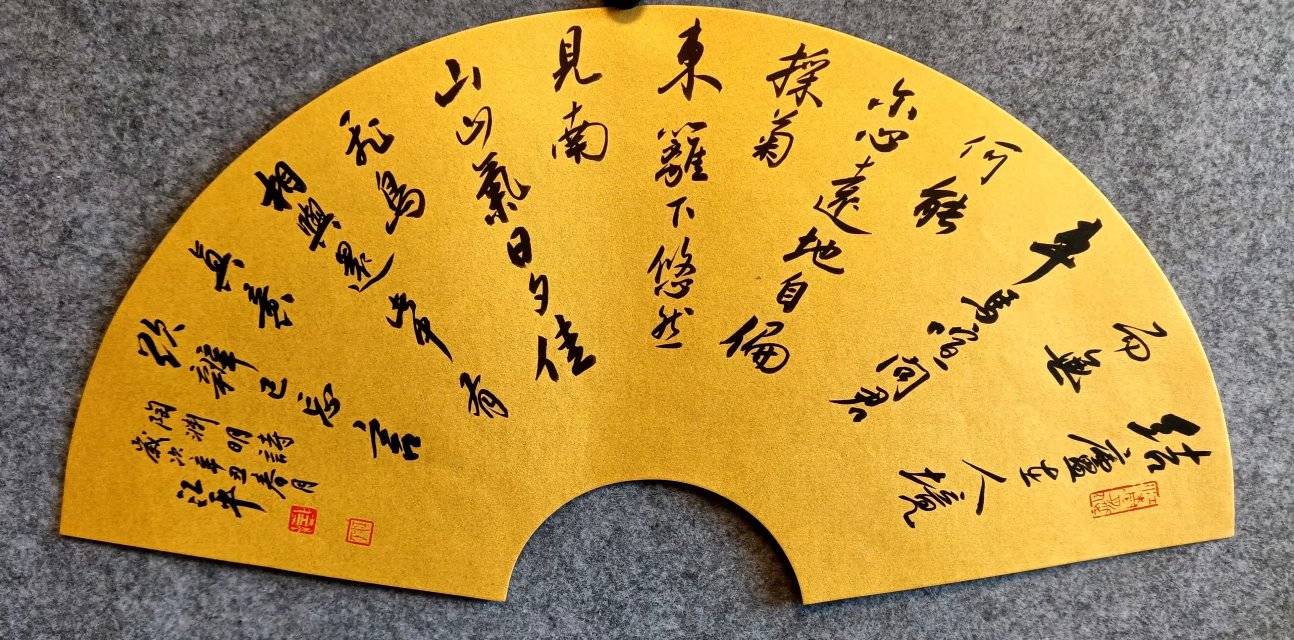 結廬在人境
而無
車馬喧問君
何能
尔心遠地自偏
採菊
東籬下悠然
見南
山山氣日夕佳
飛鳥
相與還此中有
真意
欲辨已忘言
陶渊明詩
歲次辛丑春月